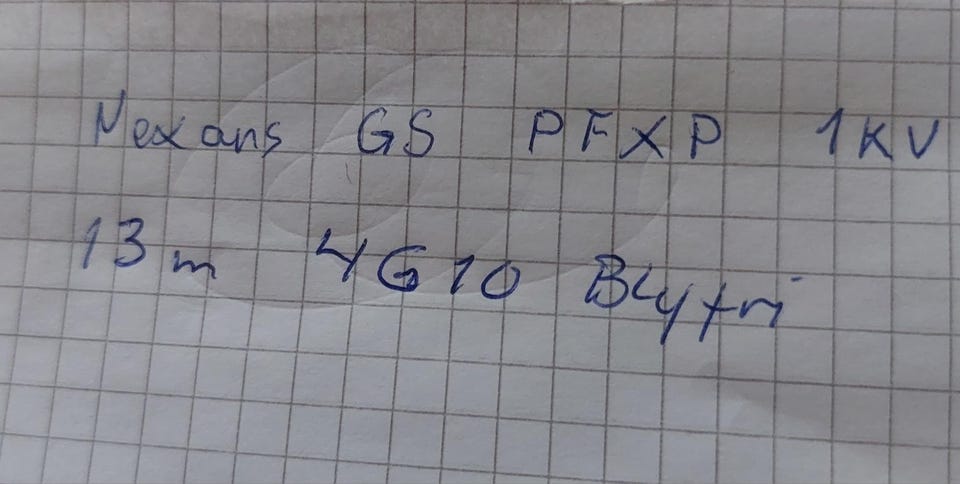 Nexans GS PFXP 1KV
13m 4G10 Blyfri